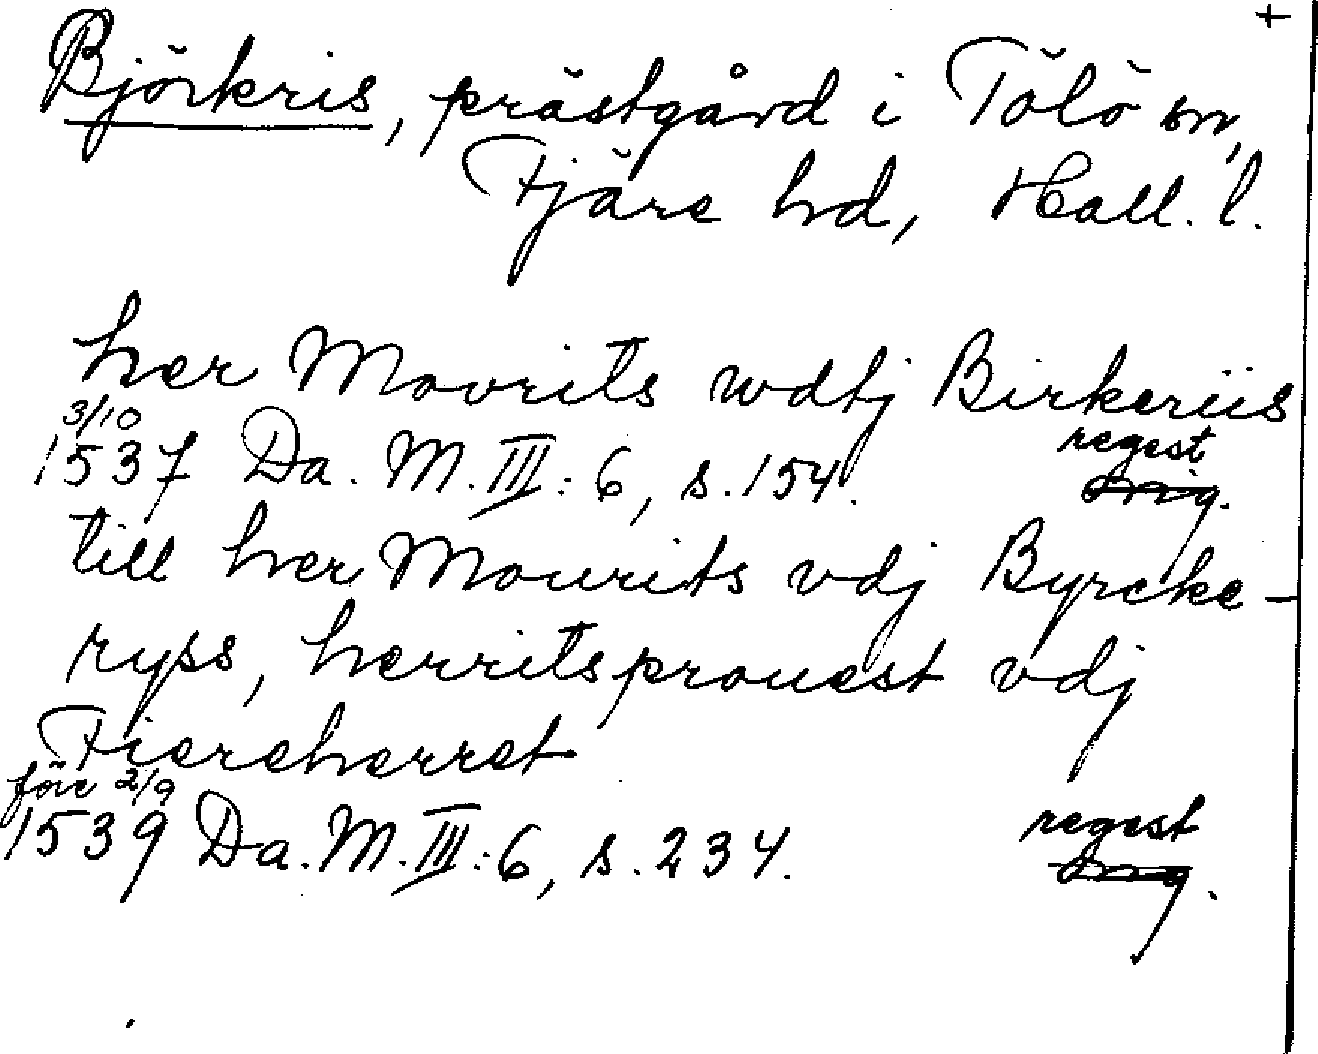 +
Björkris, prästgård i Tölö sn,
Fjäre hd, Hall. l.
her Movrits wdtj Birkeriis
3/10 regest
1537 Da. M. III: 6, s. 154. orig.
till her Mourits vdj Byrcke-
ryss, herritsprouest vdj
Fiereherret
före 2/9 regest
1539 Da. M. III: 6, s. 234. orig.